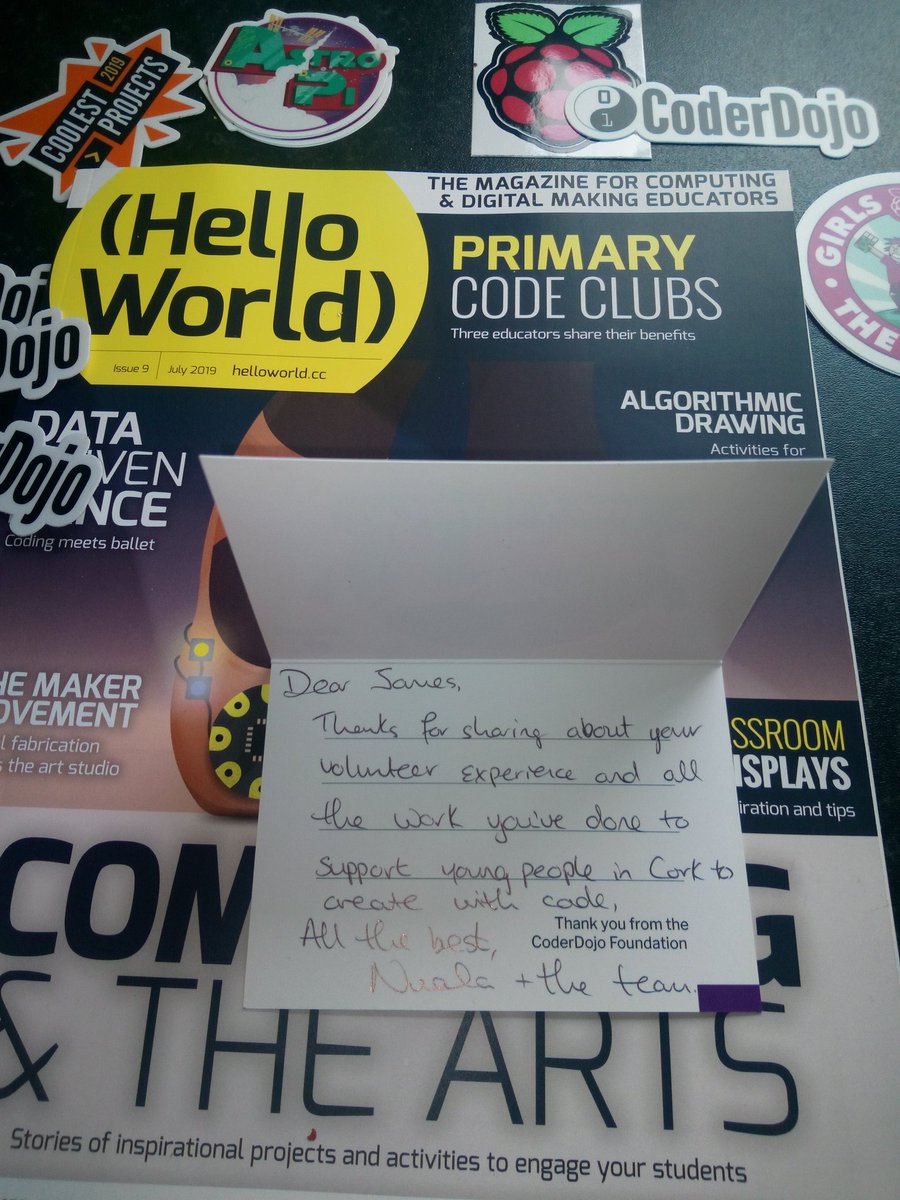 COOLEST
2019
PROJECTS
>
ASTRO
PI
0
1
CoderDojo
GIRLS
THE
THE MAGAZINE FOR COMPUTING
& DIGITAL MAKING EDUCATORS
(Hello
World)
Issue 9 | July 2019 helloworld.cc
PRIMARY
CODE CLUBS
Three educators share their benefits
Dojo
Dojo
ALGORITHMIC
DRAWING
Activities for
DATA
VEN
NCE
Coding meets ballet
HE MAKER
OVEMENT
l fabrication
s the art studio
SSROOM
ISPLAYS
iration and tips
Dear James,
Thanks for sharing about your
volunteer experience and all
the work you've done to
support young people in Cork to
create with code,
All the best,
Nuala + the team.
Thank you from the
CoderDojo Foundation
COM
G
& THE ARTS
Stories of inspirational projects and activities to engage your students